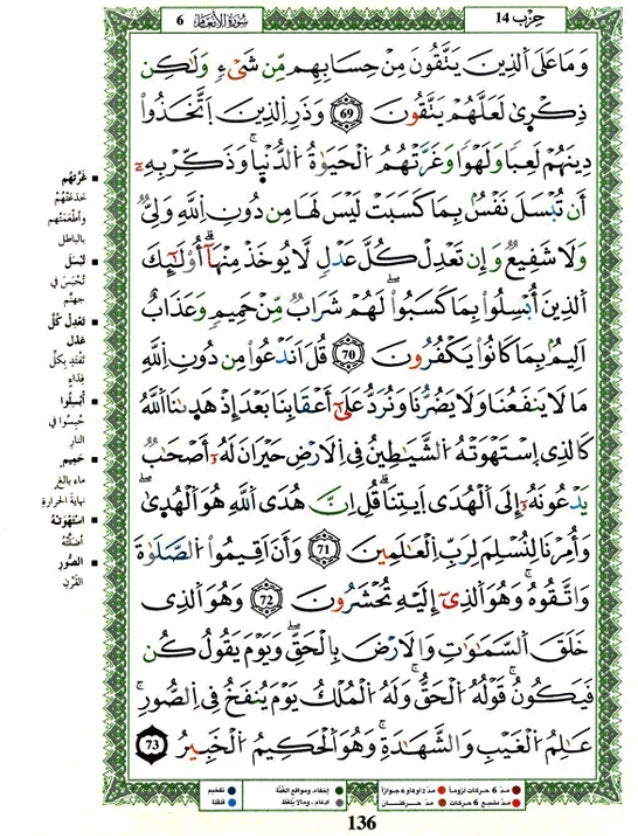 سُورَةُ الأَنْعَام 6
حِزْب 14
وَمَا عَلَى اَ۬لذِينَ يَتَّقُونَ مِنْ حِسَابِهِم مِّن شَےْءٖ وَلَٰكِن
ذِكْر۪يٰ لَعَلَّهُمْ يَتَّقُونَ 69 وَذَرِ اِ۬لذِينَ اَ۪تَّخَذُواْ
دِينَهُمْ لَعِباٗ وَلَهْواٗ وَغَرَّتْهُمُ اُ۬لْحَيَوٰةُ اُ۬لدُّنْي۪اۖ وَذَكِّرْ بِهِۦٓ
أَن تُبْسَلَ نَفْسُۢ بِمَا كَسَبَتْ لَيْسَ لَهَا مِن دُونِ اِ۬للَّهِ وَلِيّٞ
وَلَا شَفِيعٞۖ وَإِن تَعْدِلْ كُلَّ عَدْلٖ لَّا يُوخَذْ مِنْهَآۖ أُوْلَٰٓئِكَ
اَ۬لذِينَ أُبْسِلُواْ بِمَا كَسَبُواْۖ لَهُمْ شَرَابٞ مِّنْ حَمِيمٖ وَعَذَابٌ
اَلِيمُۢ بِمَا كَانُواْ يَكْفُرُونَ 70 قُلَ اَنَدْعُواْ مِن دُونِ اِ۬للَّهِ
مَا لَا يَنفَعُنَا وَلَا يَضُرُّنَا وَنُرَدُّ عَلَىٰٓ أَعْقَابِنَا بَعْدَ إِذْ هَد۪يٰنَا اَ۬للَّهُ
كَالذِے اِ۪سْتَهْوَتْهُ اُ۬لشَّيَٰطِينُ فِے اِ۬لَارْضِ حَيْرَانَ لَهُۥٓ أَصْحَٰبٞ
يَدْعُونَهُۥٓ إِلَى اَ۬لْهُدَى اَ۪يتِنَاۖ قُلِ اِنَّ هُدَى اَ۬للَّهِ هُوَ اَ۬لْهُد۪يٰۖ
وَأُمِرْنَا لِنُسْلِمَ لِرَبِّ اِ۬لْعَٰلَمِينَ 71 وَأَنَ اَقِيمُواْ اُ۬لصَّلَوٰةَ
وَاتَّقُوهُۖ وَهُوَ اَ۬لذِےٓ إِلَيْهِ تُحْشَرُونَ 72 وَهُوَ اَ۬لذِے
خَلَقَ اَ۬لسَّمَٰوَٰتِ وَالَارْضَ بِالْحَقِّۖ وَيَوْمَ يَقُولُ كُن
فَيَكُونُۖ قَوْلُهُ اُ۬لْحَقُّۖ وَلَهُ اُ۬لْمُلْكُ يَوْمَ يُنفَخُ فِے اِ۬لصُّورِۖ
عَٰلِمُ اُ۬لْغَيْبِ وَالشَّهَٰدَةِۖ وَهُوَ اَ۬لْحَكِيمُ اُ۬لْخَبِيرُ 73
غَرَّتْهُم
خَدَعَتْهُمْ
وأطْمَعَتْهم
بالباطل
تُبْسَلَ
تُحْبَسَ في
جهنَّم
تَعْدِلْ كُلَّ
عَدْلٍ
تَفْتَدِ بكلِّ
فِداءٍ
أُبْسِلُوا
حُبِسُوا في
النار
حَمِيمٍ
ماء بالغ
نهاية الحرارة
اسْتَهْوَتْهُ
أضَلَّتْهُ
الصُّورِ
القَرْنِ
مدّ 6 حركات لزوماً مدّ 2 أو 4 أو 6 جوازاً
مدّ مشبع 6 حركات مدّ حركتان
إخفاء، ومواقع الغُنَّة
ادغام، وما لا يُلفَظ
تفخيم
قلقلة
136